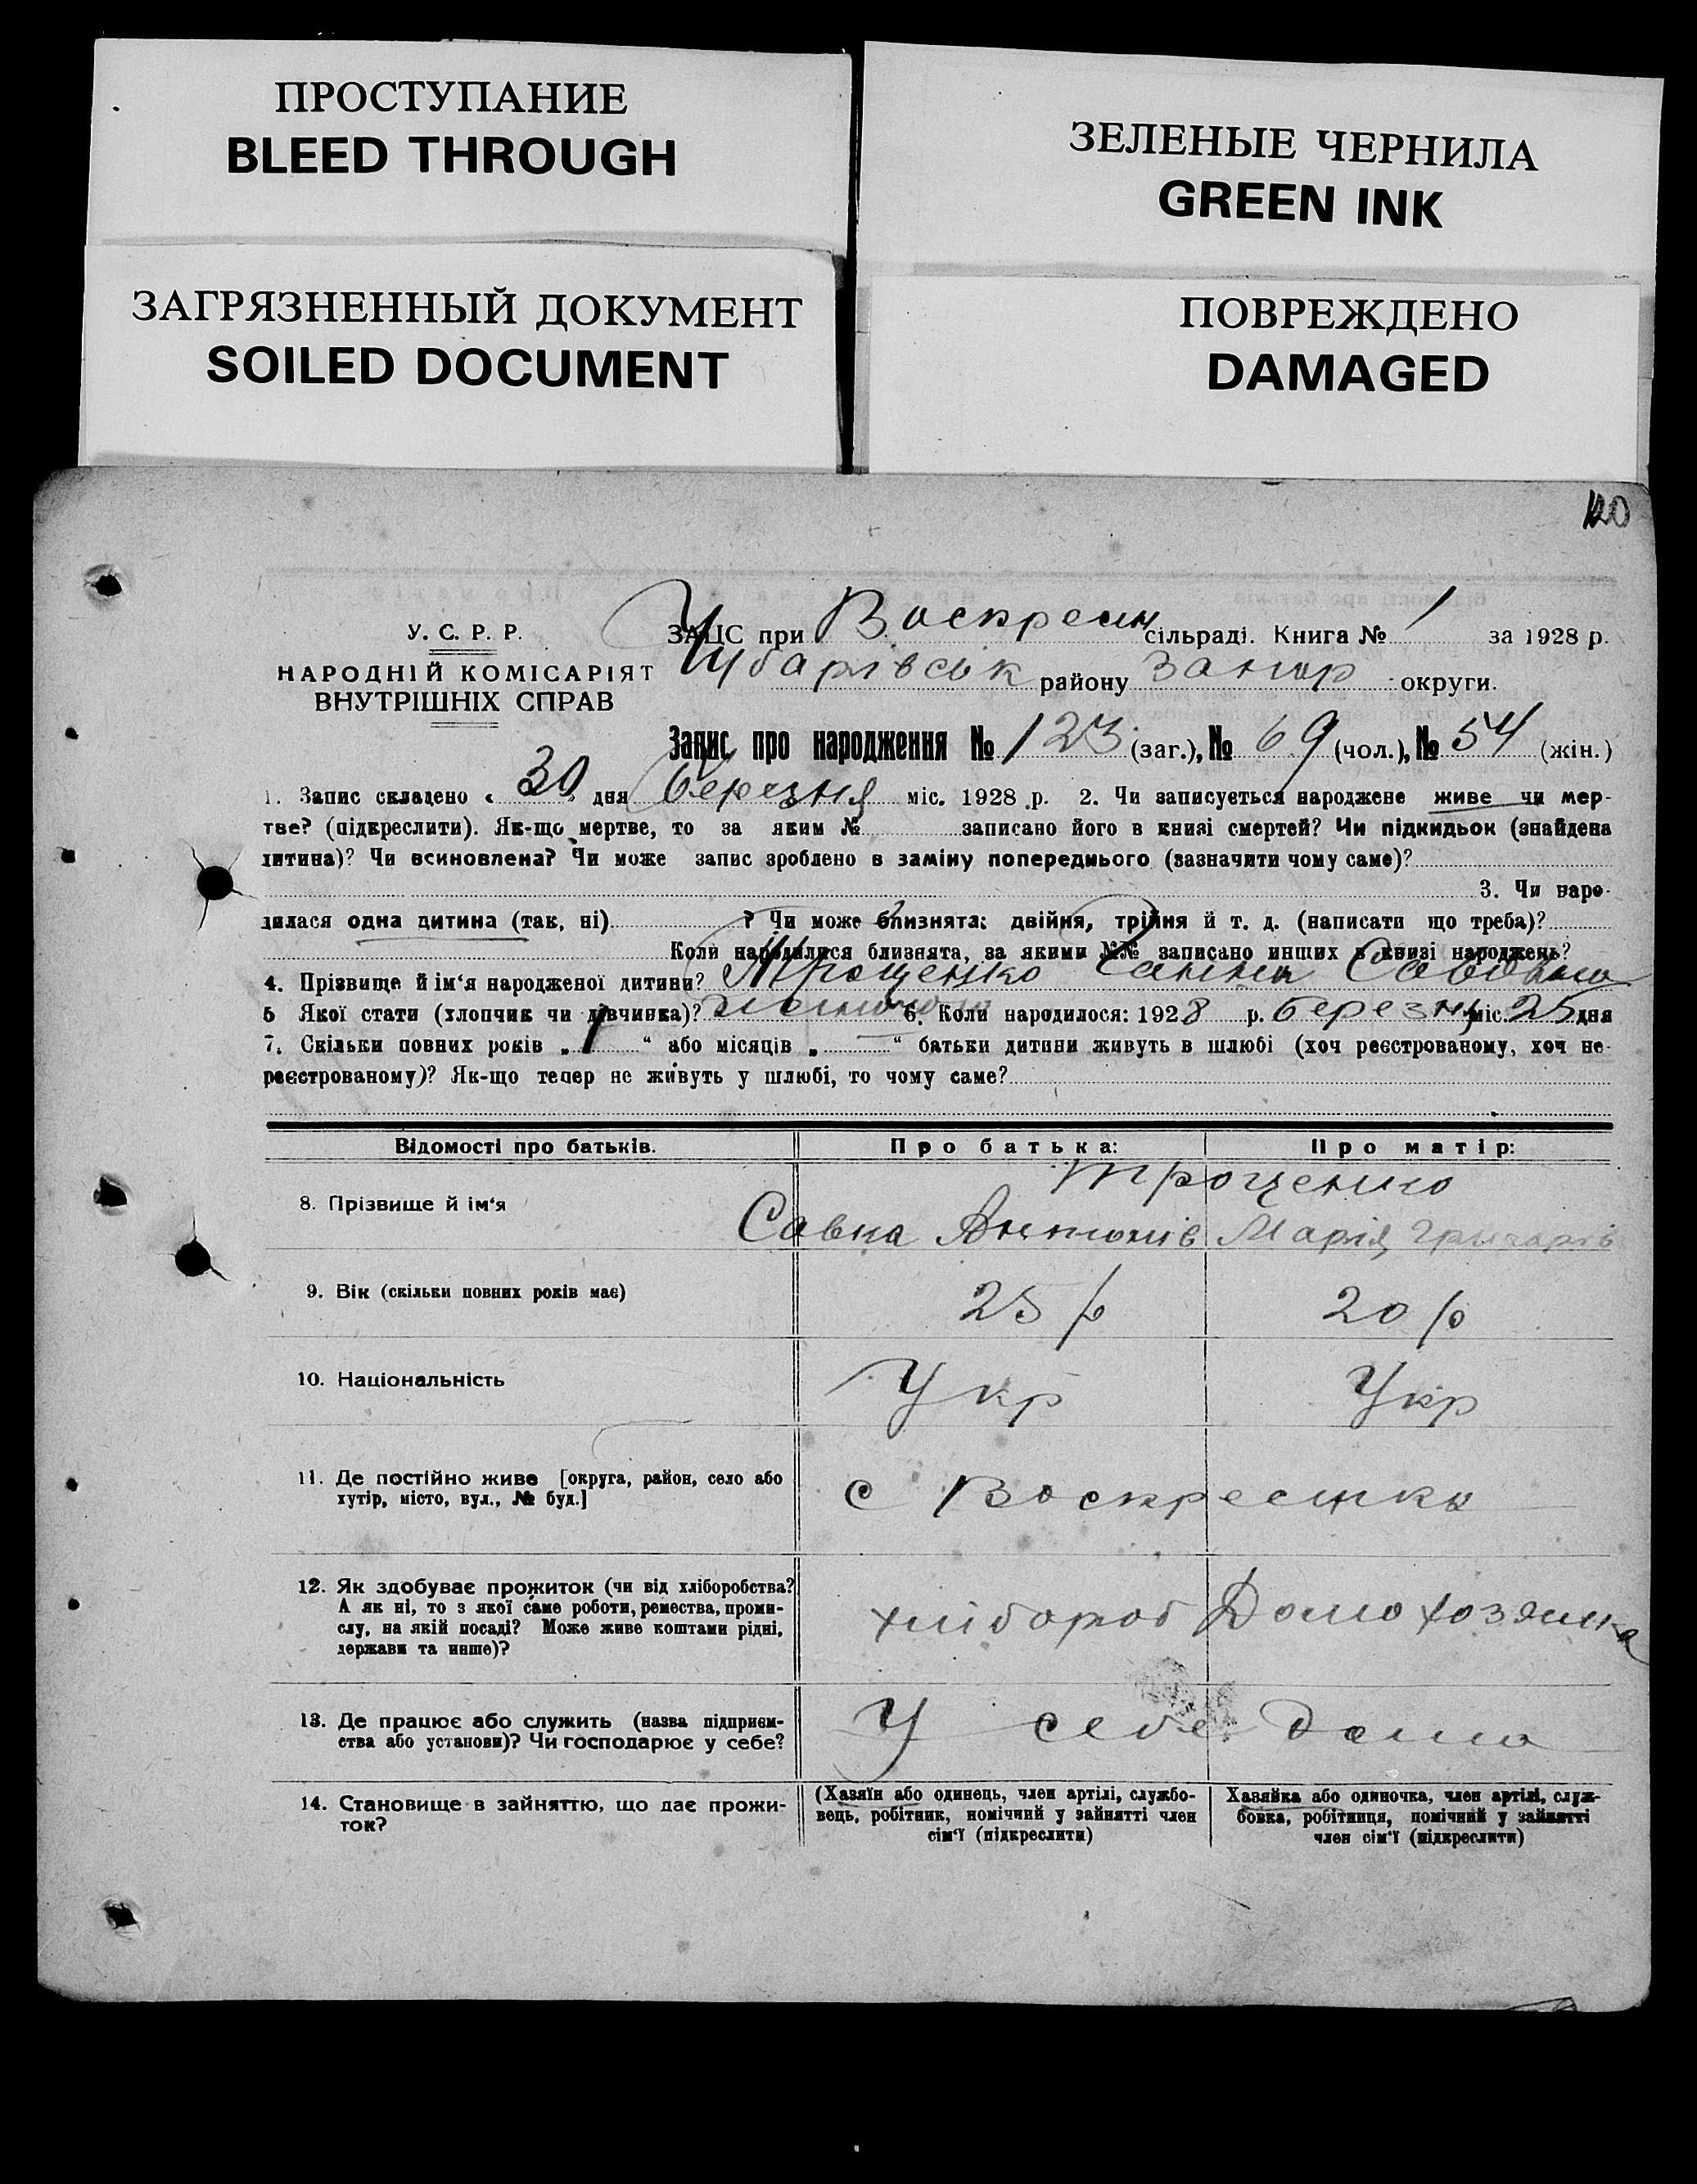 ПРОСТУПАНИЕ
BLEED THROUGH
ЗЕЛЕНЫЕ ЧЕРНИЛА
GREEN INK
ЗАГРЯЗНЕННЫЙ ДОКУМЕНТ
SOILED DOCUMENT
ПОВРЕЖДЕНО
DAMAGED
120
У. С. Р. Р.
НАРОДНІЙ КОМІСАРІЯТ
ВНУТРІШНІХ СПРАВ
ЗАЦС при Воскресен сільраді. Книга № 1 за 1928 р.
Чубарівськ району Запор округи.
Запис про народження № 123 (заг.), № 69 (чол.), № 54 (жін.)
1. Запис складено « 30 » дня березня міс. 1928 р. 2. Чи записується народжене живе чи мер-
тве? (підкреслити). Як-що мертве, то за яким № записано його в книзі смертей? Чи підкидьок (знайдена
дитина)? Чи всиновлена? Чи може запис зроблено в заміну попереднього (зазначити чому саме)?
3. Чи наро-
дилася одна дитина (так, ні) ? Чи може близнята: двійня, трійня й т. д. (написати що треба)?
Коли народилися близнята, за якими №№ записано инших в книзі народжень?
4. Прізвище й ім'я народженої дитини? Трощенко Ганна
5 Якої стати (хлопчик чи дівчинка)? 6. Коли народилося: 1928 р. березня міс. 25 дня
7. Скільки повних років „ 1 “ або місяців „ “ батьки дитини живуть в шлюбі (хоч реєстрованому, хоч не-
реєстрованому)? Як-що тепер не живуть у шлюбі, то чому саме?
Відомості про батьків. Про батька: Про матір:
Трощенко
8. Прізвище й ім'я Савка Антонів Марія
9. Вік (скільки повних років має) 25 р 20 р
10. Національність Укр Укр
11. Де постійно живе [округа, район, село або
хутір, місто, вул., № буд.]
с Воскресенка
12. Як здобуває прожиток (чи від хліборобства?
А як ні, то з якої саме роботи, ремества, проми-
слу, на якій посаді? Може живе коштами рідні,
держави та инше)?
хлібороб Домохозяйка
13. Де працює або служить (назва підприєм-
ства або установи)? Чи господарює у себе?
У себе дома
14. Становище в зайняттю, що дає прожи-
ток?
(Хазяїн або одинець, член артілі, службо-
вець, робітник, помічний у зайнятті член
сім'ї (підкреслити)
Хазяйка або одиночка, член артілі, служ-
бовка, робітниця, помічний у зайнятті
член сім'ї (підкреслити)